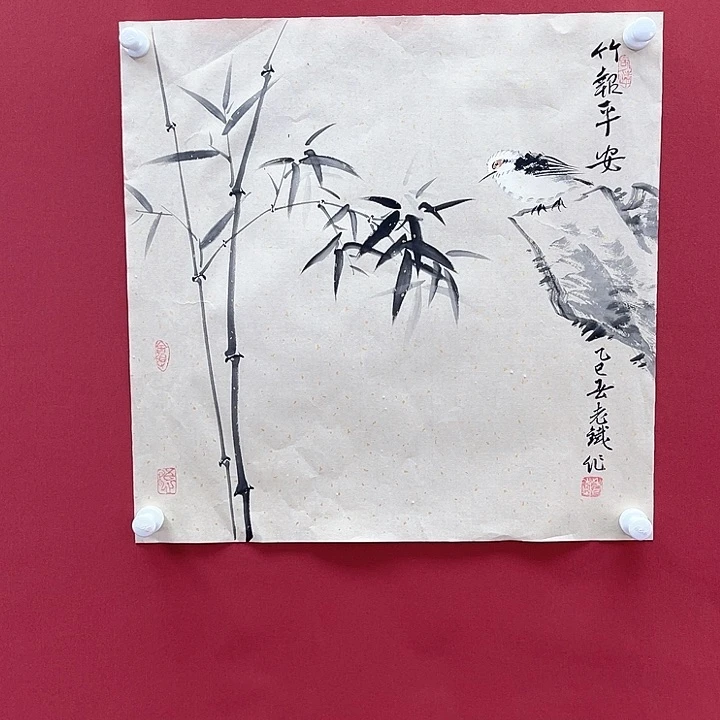 竹報平安
乙巳春老鐵作